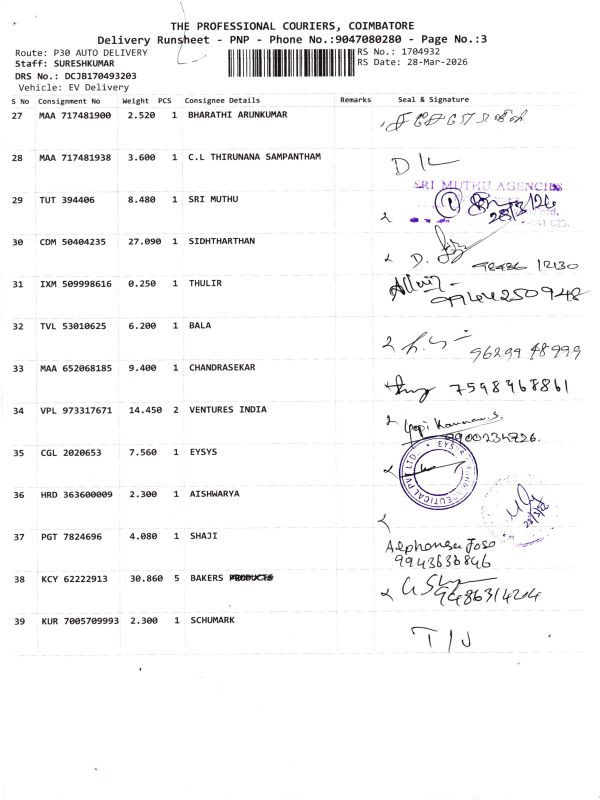 THE PROFESSIONAL COURIERS, COIMBATORE
Delivery Runsheet - PNP - Phone No.:9047080280 - Page No.:3
Route: P30 AUTO DELIVERY
RS No.: 1704932
Staff: SURESHKUMAR
RS Date: 28-Mar-2026
DRS No.: DCJB170493203
Vehicle: EV Delivery
S No Consignment No Weight PCS Consignee Details Remarks Seal & Signature
27 MAA 717481900 2.520 1 BHARATHI ARUNKUMAR
28 MAA 717481938 3.600 1 C.L THIRUNANA SAMPANTHAM
D/L
SRI MUTHU AGENCIES
29 TUT 394406 8.480 1 SRI MUTHU
28/3/26
30 CDM 50404235 27.090 1 SIDHTHARTHAN
D.
98486 12130
31 IXM 509998616 0.250 1 THULIR
9944250948
32 TVL 53010625 6.200 1 BALA
96299 48999
33 MAA 652068185 9.400 1 CHANDRASEKAR
7598968861
34 VPL 973317671 14.450 2 VENTURES INDIA
Gopi Kannan.S.
9900234726.
35 CGL 2020653 7.560 1 EYSYS
EYSYS PHARMACEUTICAL PVT LTD.
36 HRD 363600009 2.300 1 AISHWARYA
37 PGT 7824696 4.080 1 SHAJI
Alphonsa Joso
9943636846
38 KCY 62222913 30.860 5 BAKERS PRODUCTS
9486314204
39 KUR 7005709993 2.300 1 SCHUMARK
T/J